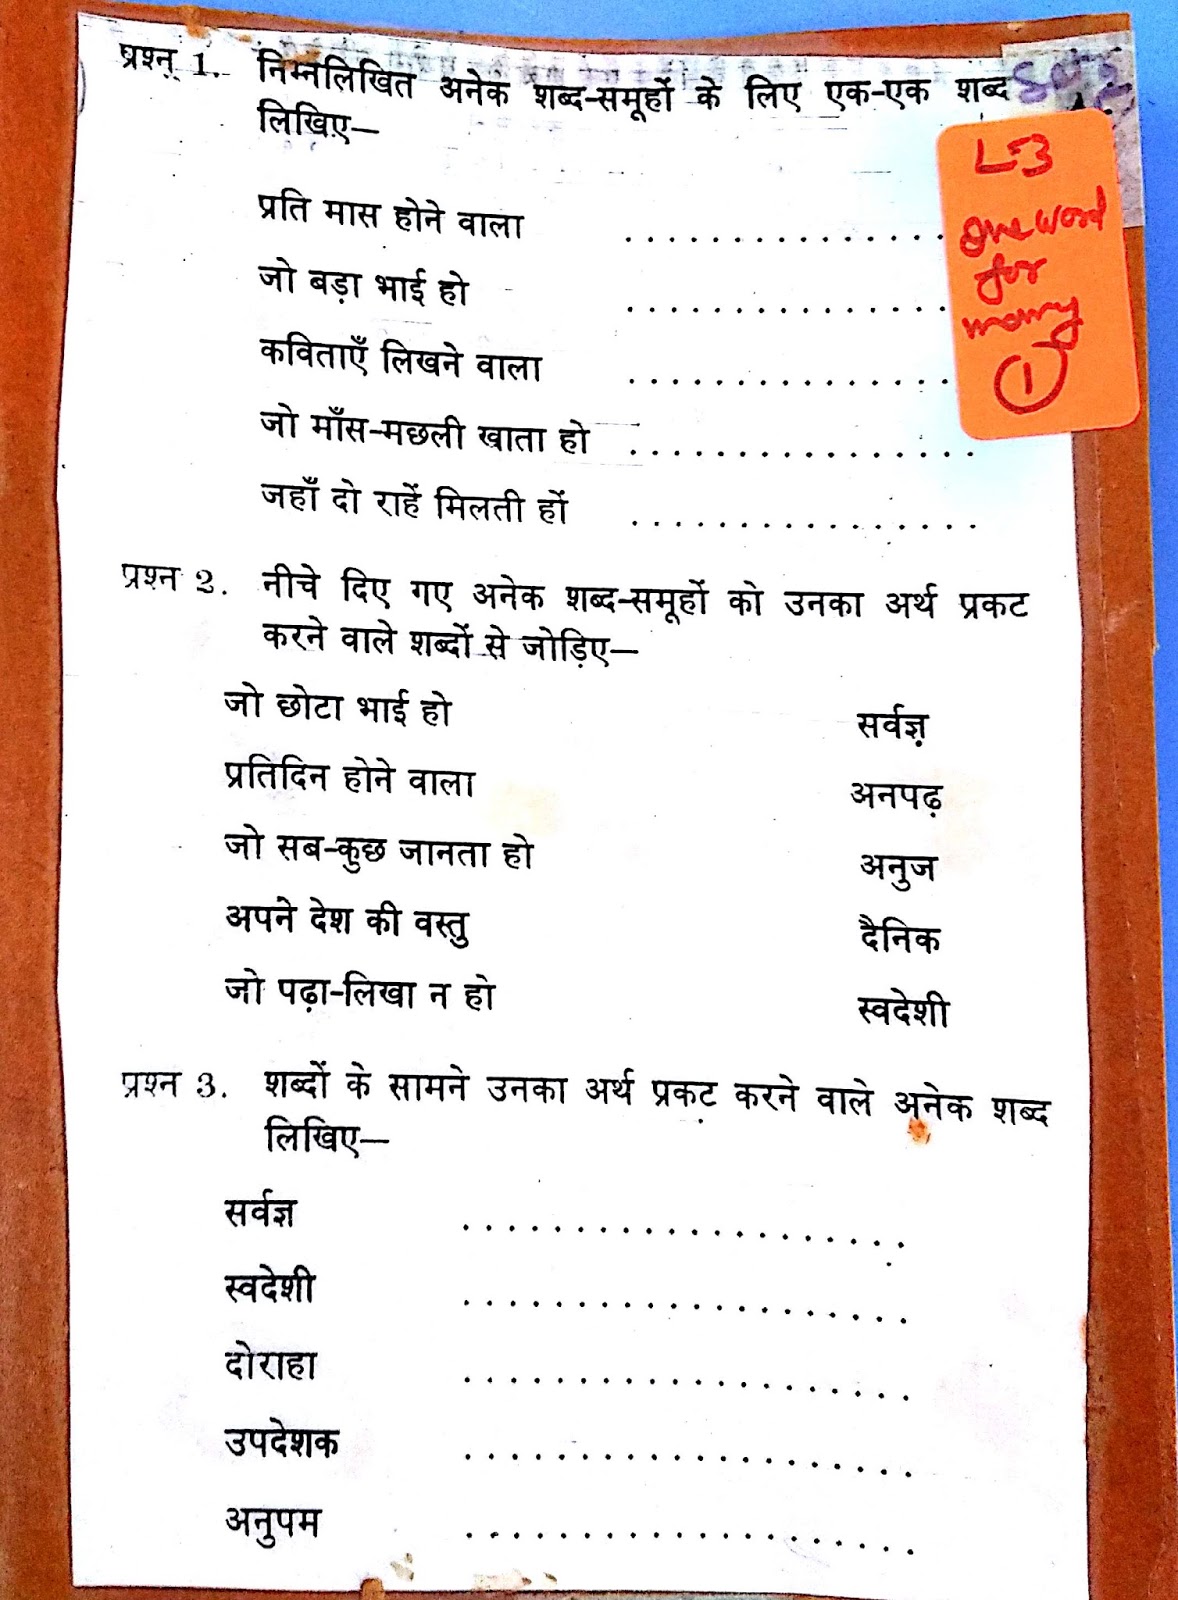 प्रश्न 1. निम्नलिखित अनेक शब्द-समूहों के लिए एक-एक शब्द
लिखिए—
L-3
one word
for
many
1
प्रति मास होने वाला ..................
जो बड़ा भाई हो ..................
कविताएँ लिखने वाला ..................
जो माँस-मछली खाता हो ................
जहाँ दो राहें मिलती हों ................
प्रश्न 2. नीचे दिए गए अनेक शब्द-समूहों को उनका अर्थ प्रकट
करने वाले शब्दों से जोड़िए—
जो छोटा भाई हो सर्वज्ञ
प्रतिदिन होने वाला अनपढ़
जो सब-कुछ जानता हो अनुज
अपने देश की वस्तु दैनिक
जो पढ़ा-लिखा न हो स्वदेशी
प्रश्न 3. शब्दों के सामने उनका अर्थ प्रकट करने वाले अनेक शब्द
लिखिए—
सर्वज्ञ ....................
स्वदेशी ....................
दोराहा ....................
उपदेशक ....................
अनुपम ....................